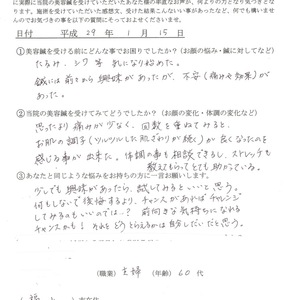 に実際に当院の美容鍼を受けていただいたあなた様の率直なお声が、何よりの力となり気づきとなります。施術を受けていただいた感想文、受けた結果こんないい事があったなど、何でも構いませんのでお気づきの事を以下の質問にそってお書きください。
日付 平成 29 年 1 月 15 日
①美容鍼を受ける前にどんな事でお困りでしたか？(お顔の悩み・鍼に対してなど)
たるみ、シワ等気になり始めた。
鍼には前々から興味があったが、不安(痛みや効果)が
あった。
②当院の美容鍼を受けてみてどうでしたか？(お顔の変化・体調の変化など)
思ったより痛みが少なく、回数を重ねてみると、
お肌の調子(ツルツルした肌ざわりが続く)が良くなったのを
感じる事が出来た。体調の事も相談できるし、ストレッチも
教えてもらってとても助かっている。
③あなたと同じような悩みをお持ちの方に一言お願いします。
少しでも興味があったら、試してみるといいと思う。
何もしないで後悔するより、チャンスがあればチャレンジ
してみるのもいいのでは…？前向きな気持ちになれる
チャンスかも！それをどうとらえるかは自分しだいだと思う。
(職業) 主婦 (年齢) 60 代